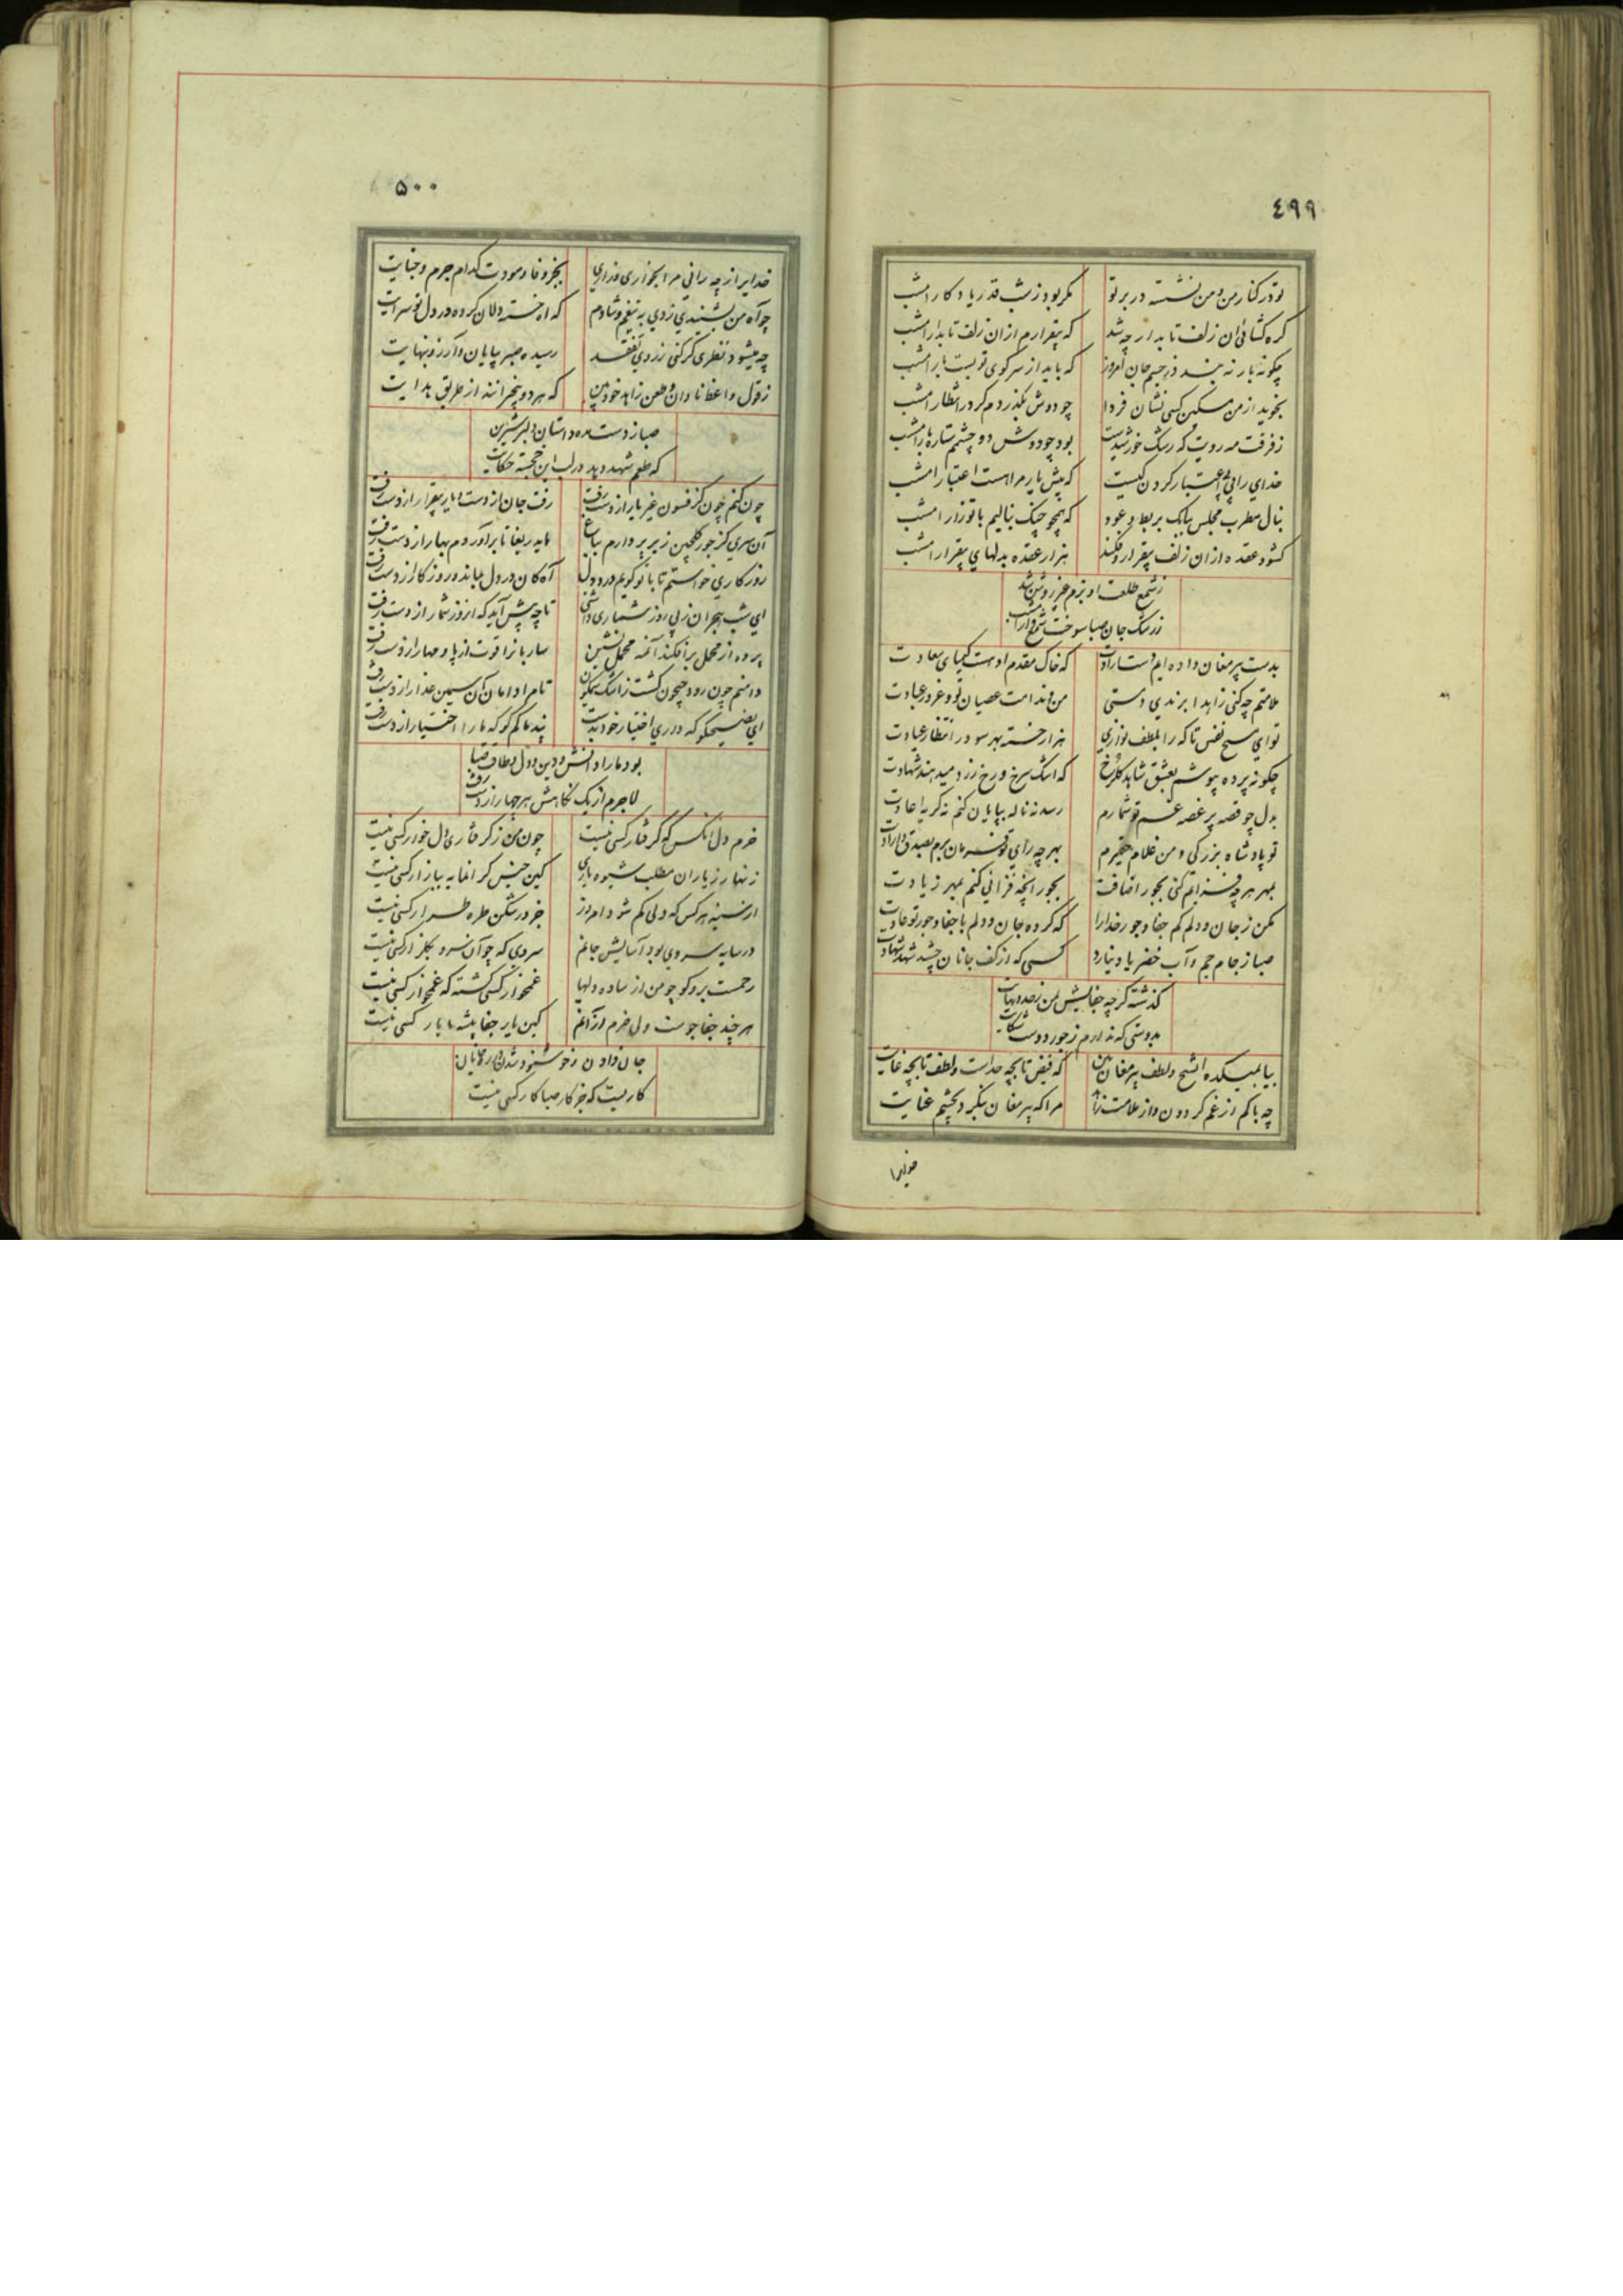 ٤٩٩
تو در کنار من و من نشسته در بر تو مکر بود ز شب قدر یادکار امشب
کره کشائی ان زلف تابدار چه شد که بیقرارم ازان زلف تابدار امشب
چکونه بار نه بندد ز جسم جان امروز که باید از سر کوی تو بست بار امشب
بجوید از من مسکین کسی نشان فردا چو دوش بکذردم کر در انتظار امشب
ز فرقت مه رویت که رشک خورشیدست بود چو دوش دو چشمم ستاره بار امشب
خدای را پی اعتبار کردن کیست که پیش یار مرا هست اعتبار امشب
بنال مطرب مجلس ببانک بربط و عود که همچو چنک بنالیم با تو زار امشب
کشود عقده ازان زلف بیقرار و فکند هزار عقده بدلهای بیقرار امشب
ز شمع طلعت او بزم غیر روشن شد
ز رشک جان صبا سوخت شمع وار امشب
بدست پیر مغان داده ایم دست ارادت که خاک مقدم اوست کیمیای سعادت
ملامتم چه کنی زاهدا برندی و مستی من و ندامت عصیان تو و غرور عبادت
تو ای مسیح نفس تا که را بلطف نوازی هزار خسته بهر سو در انتظار عیادت
چکونه پرده بپوشم بعشق شاهد کلرخ که اشک سرخ و رخ زرد میدهند شهادت
بدل چو قصه پر غصه غم تو شمارم رسد نه ناله بپایان کنم نه کریه اعادت
تو پادشاه بزرکی و من غلام حقیرم بهر چه رای تو فرمان برم بصدق و ارادت
بمهر هر چه فزایم کنی بجور اضافت بجور انچه فزائی کنم بمهر زیادت
مکن ز جان و دلم کم جفا و جور خدارا که کرده جان و دلم با جفا و جور تو عادت
صبا ز جام جم و آب خضر یاد نیارد کسی که از کف جانان چشد شهد شهادت
کذشته کرچه جفایش بمن ز حد و نهایت
بدوستی که ندارم ز جور دوست شکایت
بیا بمیکده ای شیخ و لطف پیر مغان بین که فیض تا بچه حدست و لطف تا بچه غایت
چه باکم از غم کردون و از ملامت زاهد مرا که پیر مغان بنکرد بچشم عنایت
خدایرا
۵۰۰
خدایرا ز چه رانی مرا بخواری و زاری بجز وفا و مودت کدام جرم و جنایت
چو آه من بشنیدی زدی به تیغم و شادم که اه خسته دلان کرده در دل تو سرایت
چه میشود نظری کر کنی ز روی تفقد رسیده صبر بپایان و آرزو بنهایت
ز قول واعظ نادان و طعن زاهد خودبین که هر دو بیخبرانند از طریق هدایت
صبا ز دست مده داستان دلبر شیرین
که طعم شهد دهد در لب این خجسته حکایت
چون کنم چون کز فسون غیر یار از دست رفت رفت جان از دست و یار بیقرار از دست رفت
آن سری کز جور کلچین زیر پر دارم بباغ مایه ریغا تا برآوردم بهار از دست رفت
روزکاری خواستم تا با تو کویم درد دل آه کان در دل بماند و روزکار از دست رفت
ای شب هجران ز پی روز شماری داشتی تا چه پیش آید که از روز شمار از دست رفت
پرده از محمل برافکند آنمه محمل نشین ساربانرا قوت از پا و مهار از دست رفت
دامنم چون رود جیحون کشت ز اشک نیلکون تا مرا دامان آن سیمین عذار از دست رفت
ای نصیحتکو که داری اختیار خود بدست پند ما کم کو که ما را اختیار از دست رفت
بود ما را دانش و دین و دل و طاقت صبا
لاجرم از یک نکاهش هر چهار از دست رفت
خرم دل انکس که کرفتار کسی نیست چون من ز کرفتاری دل خوار کسی نیست
زنهار ز یاران مطلب شیوه یاری کین جنس کرانمایه ببازار کسی نیست
از سینه هر کس که دلی کم شود امروز جز در شکن طره طرار کسی نیست
در سایه سروی بود آسایش جانم سروی که چو آن سرو بکلزار کسی نیست
رحمت برو کو چو من از ساده دلیها غمخوار کسی کشته که غمخوار کسی نیست
هر چند جفا جوست ولی خرم ازآنم کین یار جفا پیشه ما یار کسی نیست
جان دادن و خوشنود شدن در ره جانان
کاریست که جز کار صبا کار کسی نیست